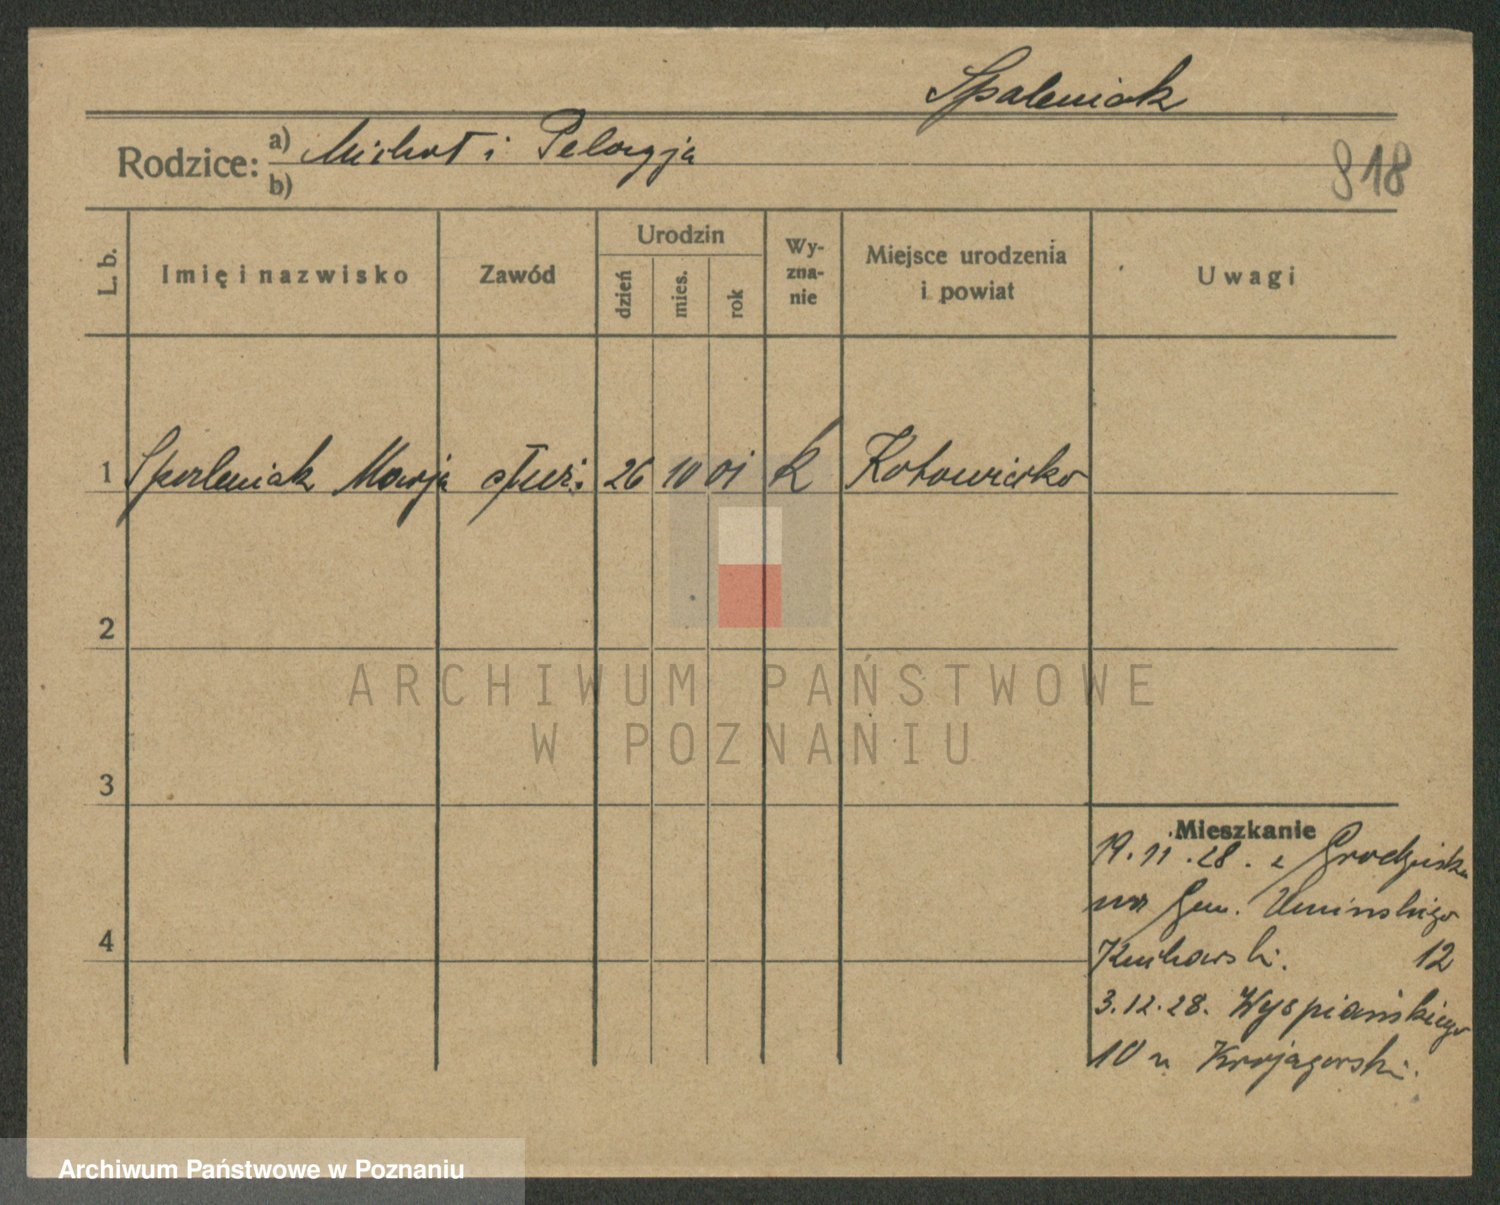 Spaleniak
Rodzice: a) Michał i Pelagja
b)
818
L. b.
Imię i nazwisko
Zawód
Urodzin
dzień
mies.
rok
Wy-
zna-
nie
Miejsce urodzenia
i powiat
Uwagi
1 Spaleniak Marja służ. 26 10 01 k Kotowiecko
2
3
4
Mieszkanie
19.11.28. z Grodziska
na Gen. Umińskiego
12
3.12.28. Wyspiańskiego
10 u
ARCHIWUM PAŃSTWOWE
W POZNANIU
Archiwum Państwowe w Poznaniu